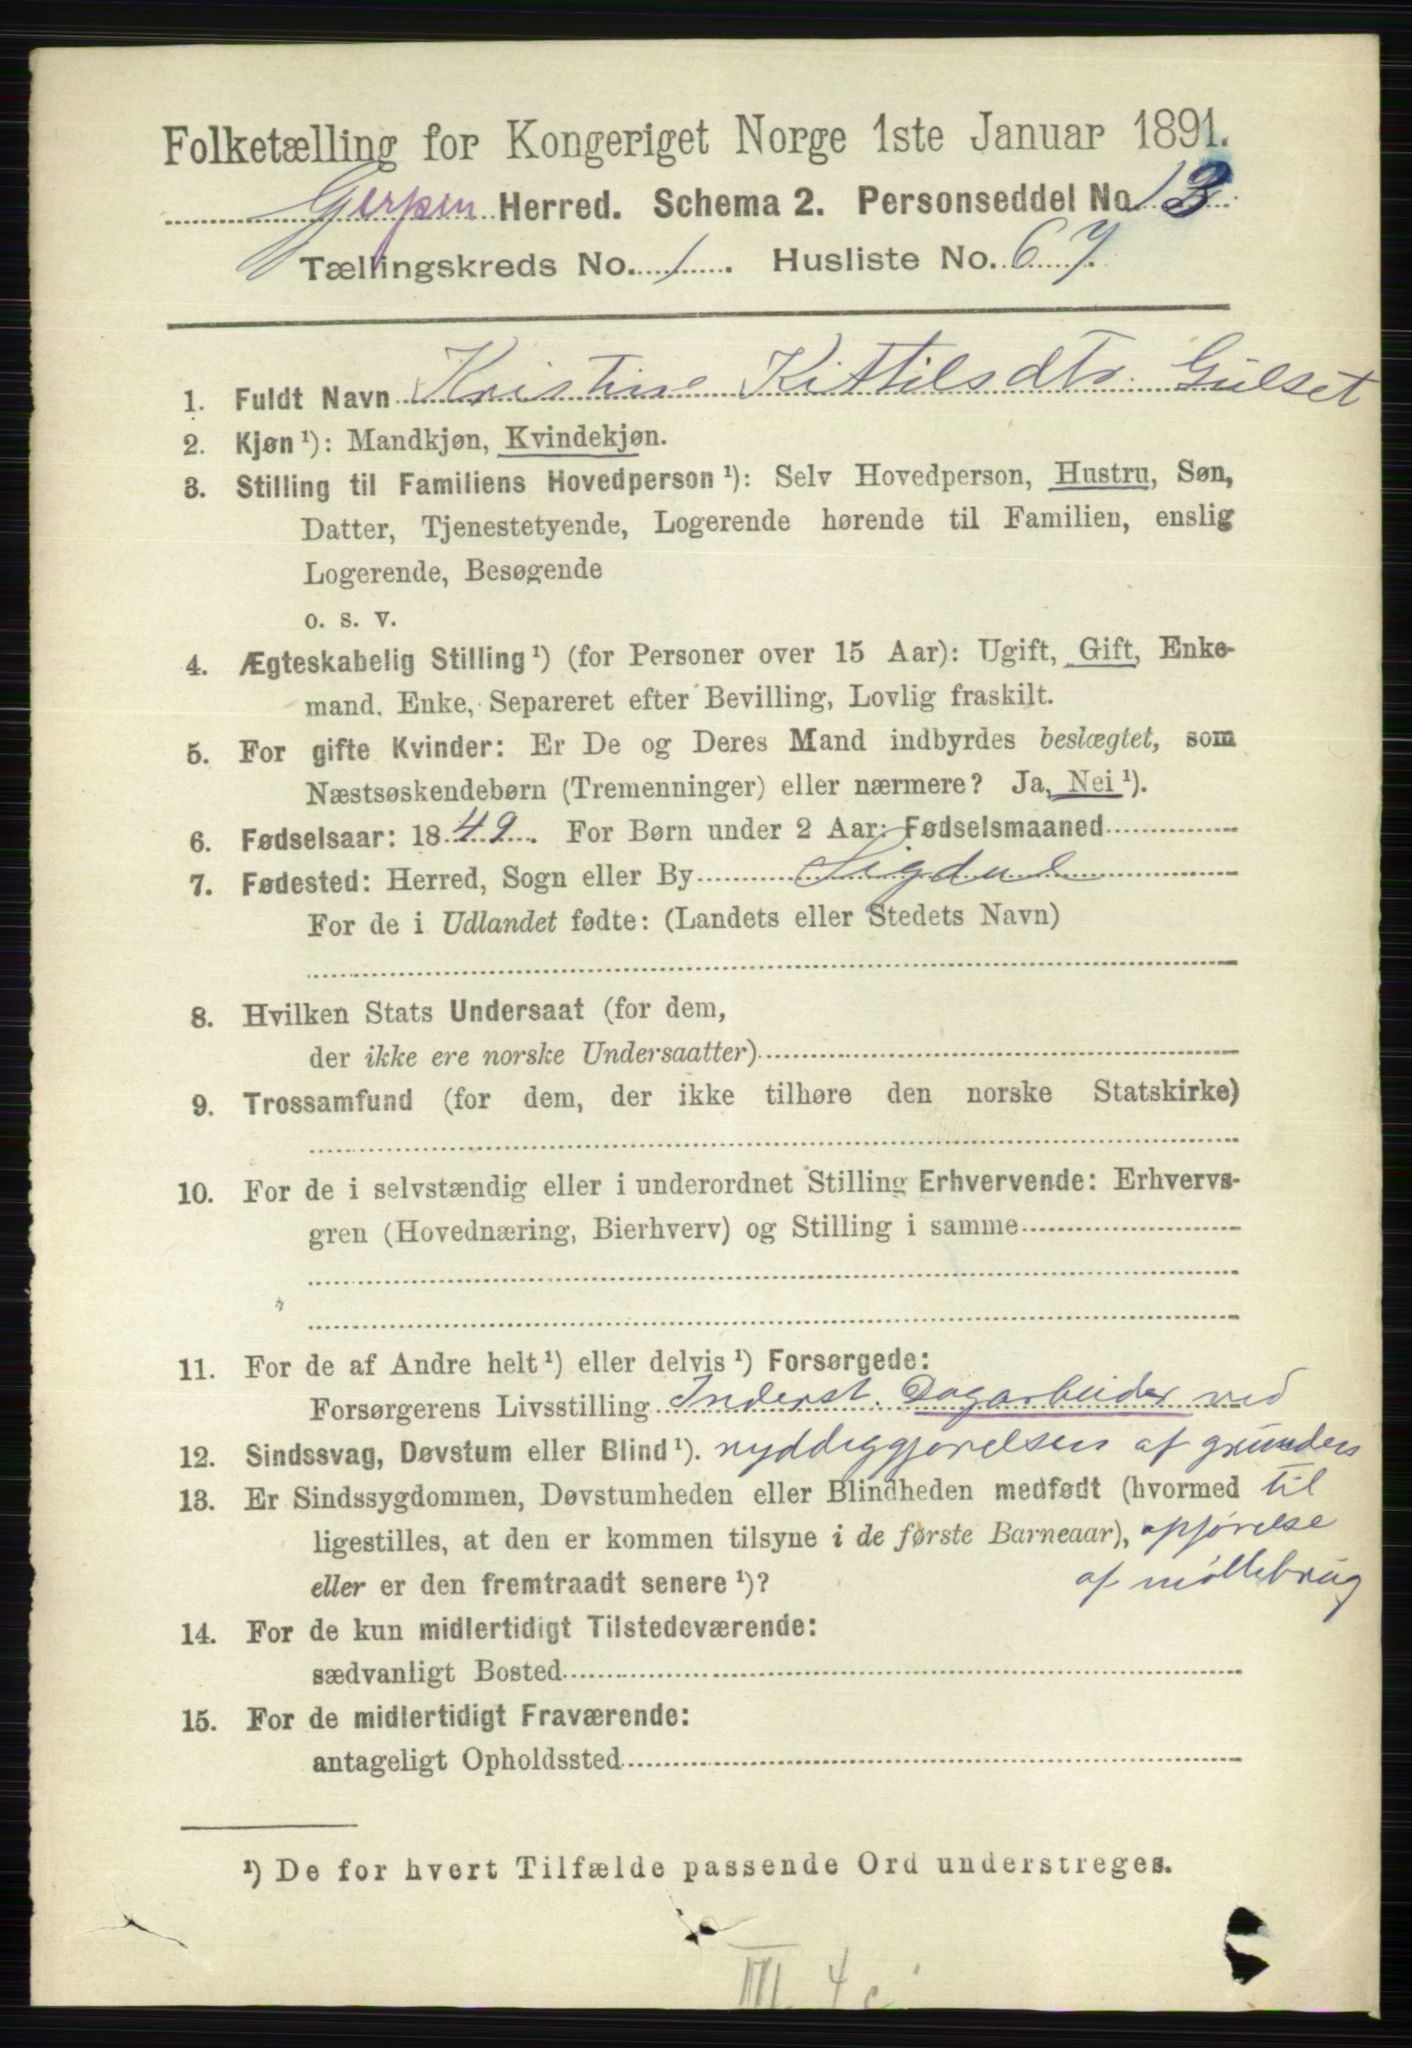 Folketælling for Kongeriget Norge 1ste Januar 1891.
Gerpen Herred. Schema 2. Personseddel No. 13
Tællingskreds No. 1. Husliste No. 67.
1. Fuldt Navn Kristine Kittilsdtr. Gulset
2. Kjøn ¹): Mandkjøn, Kvindekjøn.
3. Stilling til Familiens Hovedperson ¹): Selv Hovedperson, Hustru, Søn,
Datter, Tjenestetyende, Logerende hørende til Familien, enslig
Logerende, Besøgende
o. s. v.
4. Ægteskabelig Stilling ¹) (for Personer over 15 Aar): Ugift, Gift, Enke-
mand. Enke, Separeret efter Bevilling, Lovlig fraskilt.
5. For gifte Kvinder: Er De og Deres Mand indbyrdes beslægtet, som
Næstsøskendebørn (Tremenninger) eller nærmere? Ja, Nei ¹).
6. Fødselsaar: 1849. For Børn under 2 Aar: Fødselsmaaned
7. Fødested: Herred, Sogn eller By Sigdal
For de i Udlandet fødte: (Landets eller Stedets Navn)
8. Hvilken Stats Undersaat (for dem,
der ikke ere norske Undersaatter)
9. Trossamfund (for dem, der ikke tilhøre den norske Statskirke)
10. For de i selvstændig eller i underordnet Stilling Erhvervende: Erhvervs-
gren (Hovednæring, Bierhverv) og Stilling i samme
11. For de af Andre helt ¹) eller delvis ¹) Forsørgede:
Forsørgerens Livsstilling Inderst. Dagarbeider ved
12. Sindssvag, Døvstum eller Blind ¹). ryddiggjørelsen af grunden
13. Er Sindssygdommen, Døvstumheden eller Blindheden medfødt (hvormed til
ligestilles, at den er kommen tilsyne i de første Barneaar), opførelse
eller er den fremtraadt senere ¹)? af møllebrug
14. For de kun midlertidigt Tilstedeværende:
sædvanligt Bosted
15. For de midlertidigt Fraværende:
antageligt Opholdssted
¹) De for hvert Tilfælde passende Ord understreges.
III. 4 c